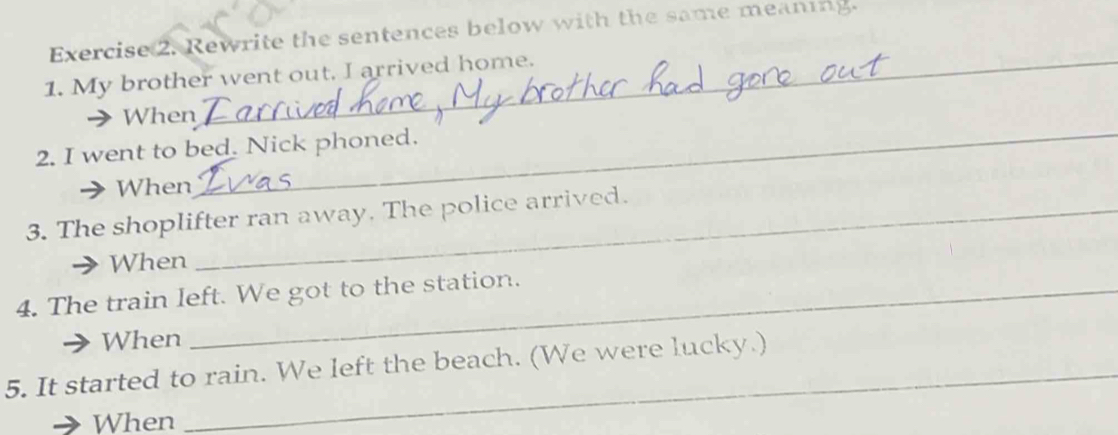 Tra
Exercise 2. Rewrite the sentences below with the same meaning.
1. My brother went out. I arrived home.
→ When I arrived home, My brother had gone out
2. I went to bed. Nick phoned.
→ When I was
3. The shoplifter ran away. The police arrived.
→ When
4. The train left. We got to the station.
→ When
5. It started to rain. We left the beach. (We were lucky.)
→ When